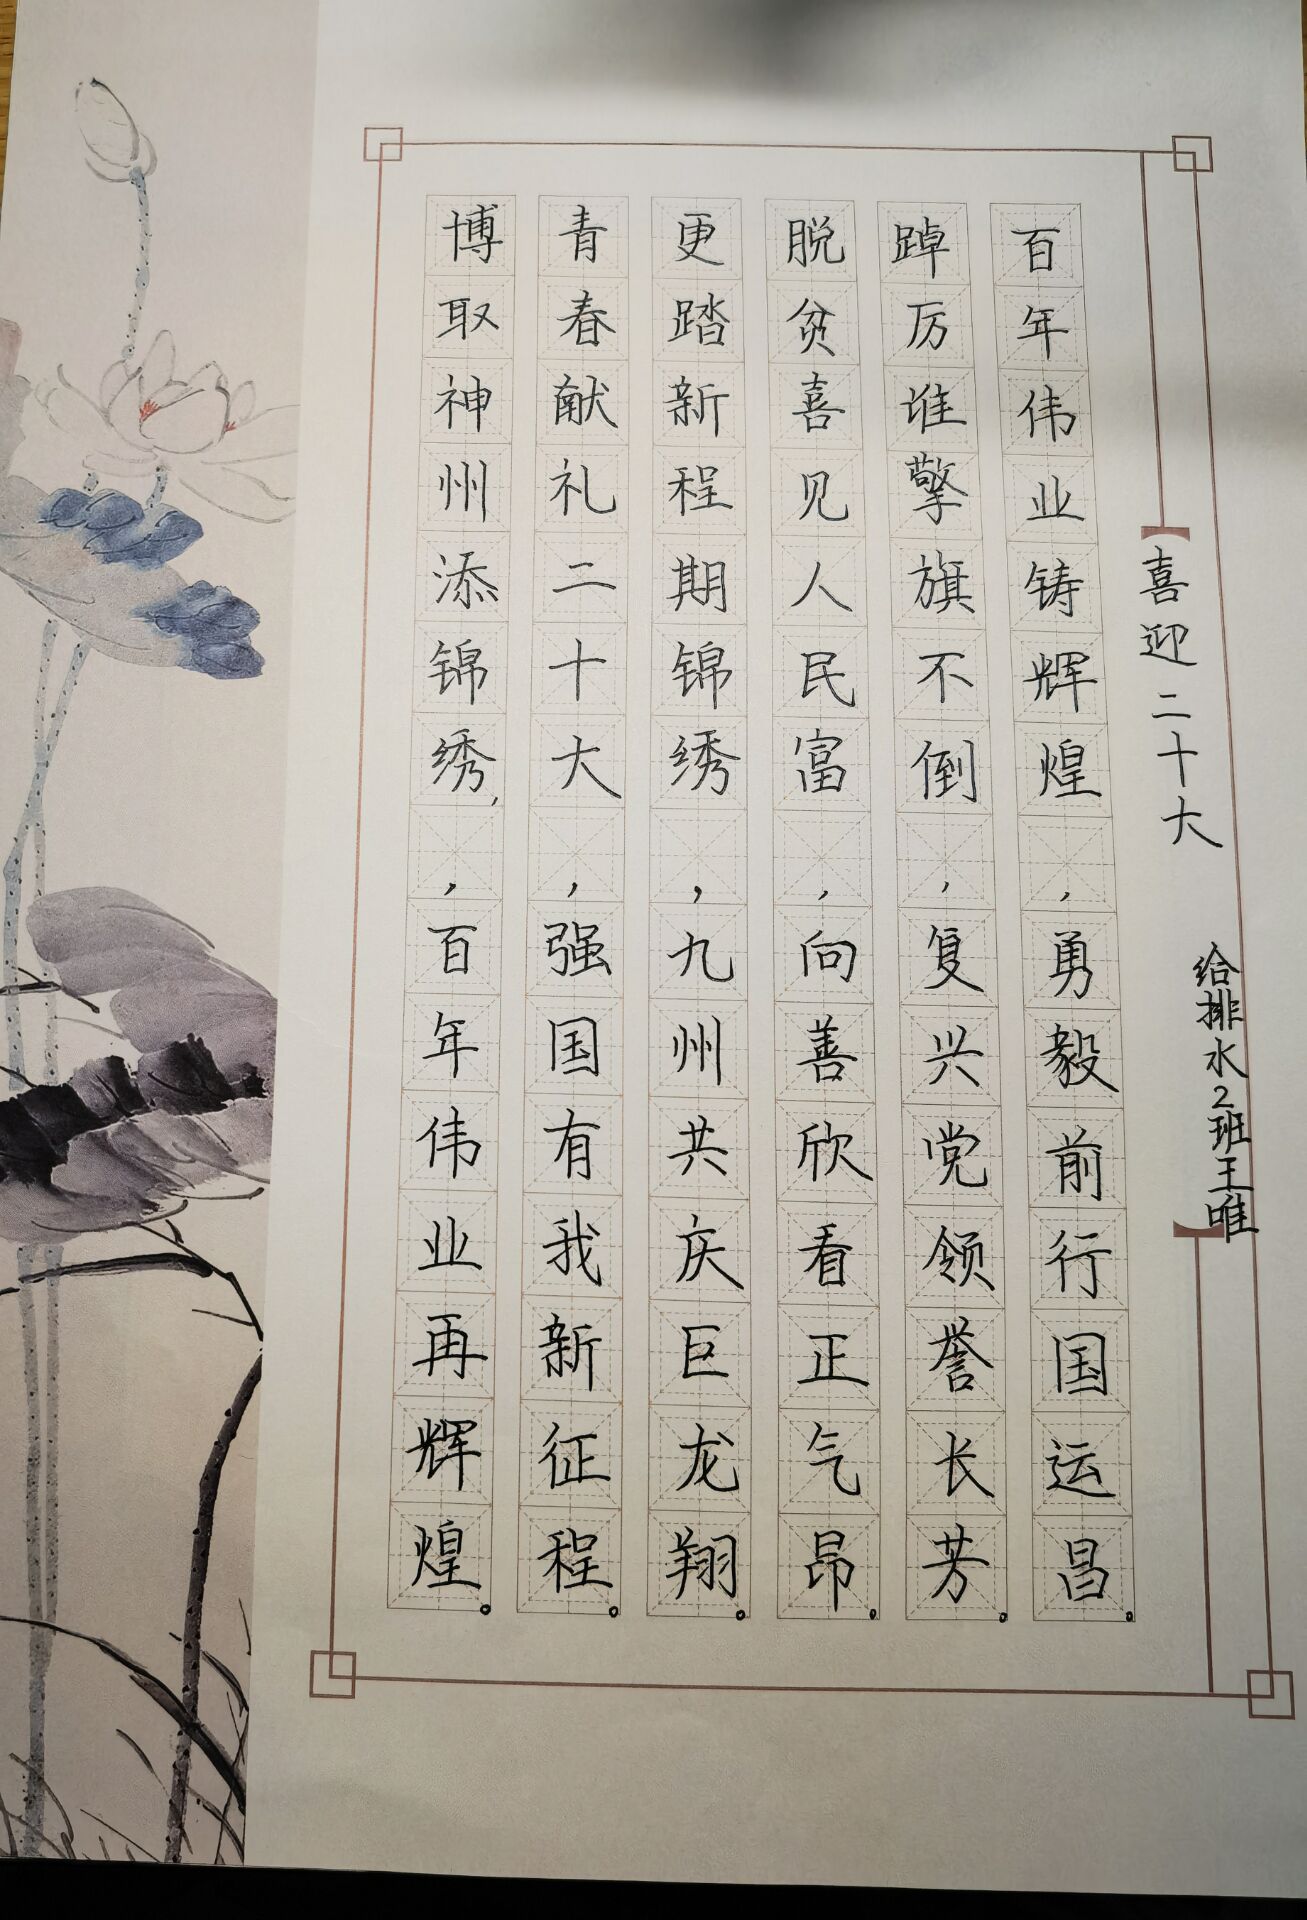 喜迎二十大
给排水2班王唯
百年伟业铸辉煌，勇毅前行国运昌。
踔厉谁擎旗不倒，复兴党领誉长芳。
脱贫喜见人民富，向善欣看正气昂。
更踏新程期锦绣，九州共庆巨龙翔。
青春献礼二十大，强国有我新征程。
博取神州添锦绣，，百年伟业再辉煌。